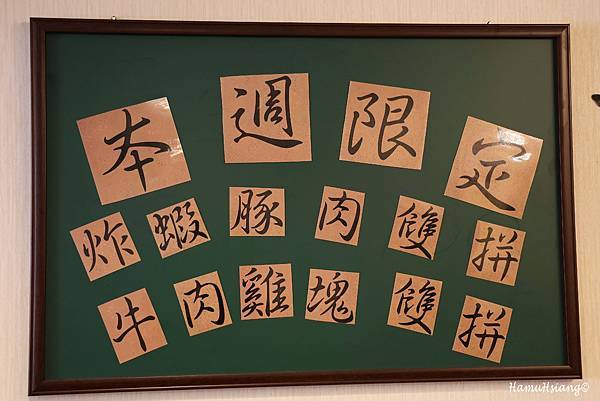 本週限定
炸蝦豚肉雙拼
牛肉雞塊雙拼
HamuHsiang©